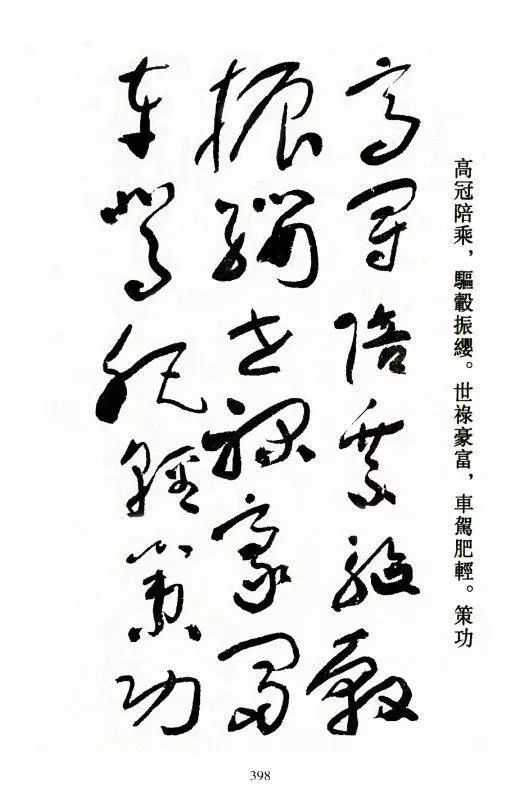 高冠陪乘，驅轂振纓。世祿豪富，車駕肥輕。策功
高冠陪乘驅轂
振纓世祿豪富
車駕肥輕策功
398